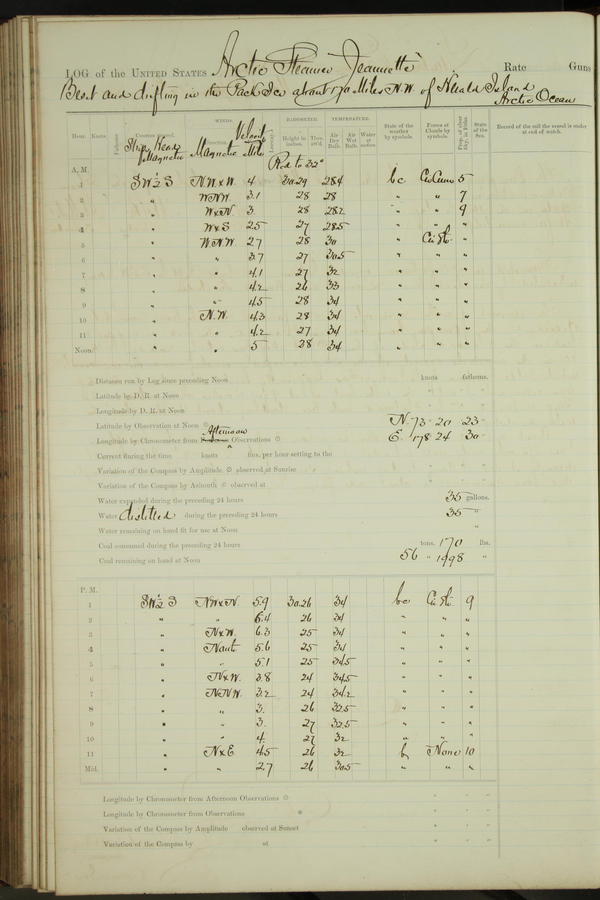 LOG of the UNITED STATES Arctic Steamer Jeannette Rate Guns
Beset and drifting in the Pack Ice about 170 Miles N.W. of Herald Island
Arctic Ocean
WINDS. BAROMETER. TEMPERATURE.
Hour. Knots. Courses steered. Ship's Head Magnetic Direction. Magnetic Velocity Miles Height in inches. Ther. att'd. Air Dry Bulb. Air Wet Bulb. Water at surface. State of the weather by symbols. Forms of Clouds by symbols. Prop. of clear Sky, in 10ths. State of the Sea. Record of the sail the vessel is under at end of watch.
Red to 32°
A. M.
1 SW½S NWxW. 4 30.29 28.4 bc Ci Cum 5
2 " WNW. 3.1 28 28 " " 7
3 " WxN 3. 28 28.2 " " 9
4 " WxS 2.5 27 28.5 " " "
5 " WNW. 2.7 28 30 " Ci St. "
6 " " 3.7 27 30.5 " " "
7 " " 4.1 27 32 " " "
8 " " 4.2 26 33 " " "
9 " " 4.5 28 34 " " "
10 " N.W. 4.3 28 34 " " "
11 " " 4.2 27 34 " " "
Noon. " " 5 28 34 " " "
Distance run by Log since preceding Noon knots fathoms.
Latitude by D. R. at Noon " "
Longitude by D. R. at Noon " "
Latitude by Observation at Noon N. 73 20 23
Longitude by Chronometer from Afternoon Observations E. 178 24 30
Current during the time knots ths. per hour setting to the
Variation of the Compass by Amplitude observed at Sunrise " " "
Variation of the Compass by Azimuth observed at " " "
Water expended during the preceding 24 hours 35 gallons.
Water distilled during the preceding 24 hours 35 "
Water remaining on hand fit for use at Noon "
Coal consumed during the preceding 24 hours tons. 170 lbs.
Coal remaining on hand at Noon 56 " 1998 "
P. M.
1 SW½S NWxN. 5.9 30.26 34 bc Ci St. 9
2 " " 6.4 26 34 " " "
3 " NxW. 6.3 25 34 " " "
4 " 5.6 25 34 " " "
5 " " 5.1 25 34.5 " " "
6 " NxW. 3.8 24 34.5 " " "
7 " NNW. 3.2 24 34.2 " " "
8 " " 3. 26 32.5 " " "
9 " " 3. 27 32.5 " " "
10 " " 4. 27 32 " " "
11 " NxE 4.5 26 32 b None 10
Mid. " " 2.7 26 30.5 " " "
Longitude by Chronometer from Afternoon Observations " " "
Longitude by Chronometer from Observations " " "
Variation of the Compass by Amplitude observed at Sunset " " "
Variation of the Compass by at " " "